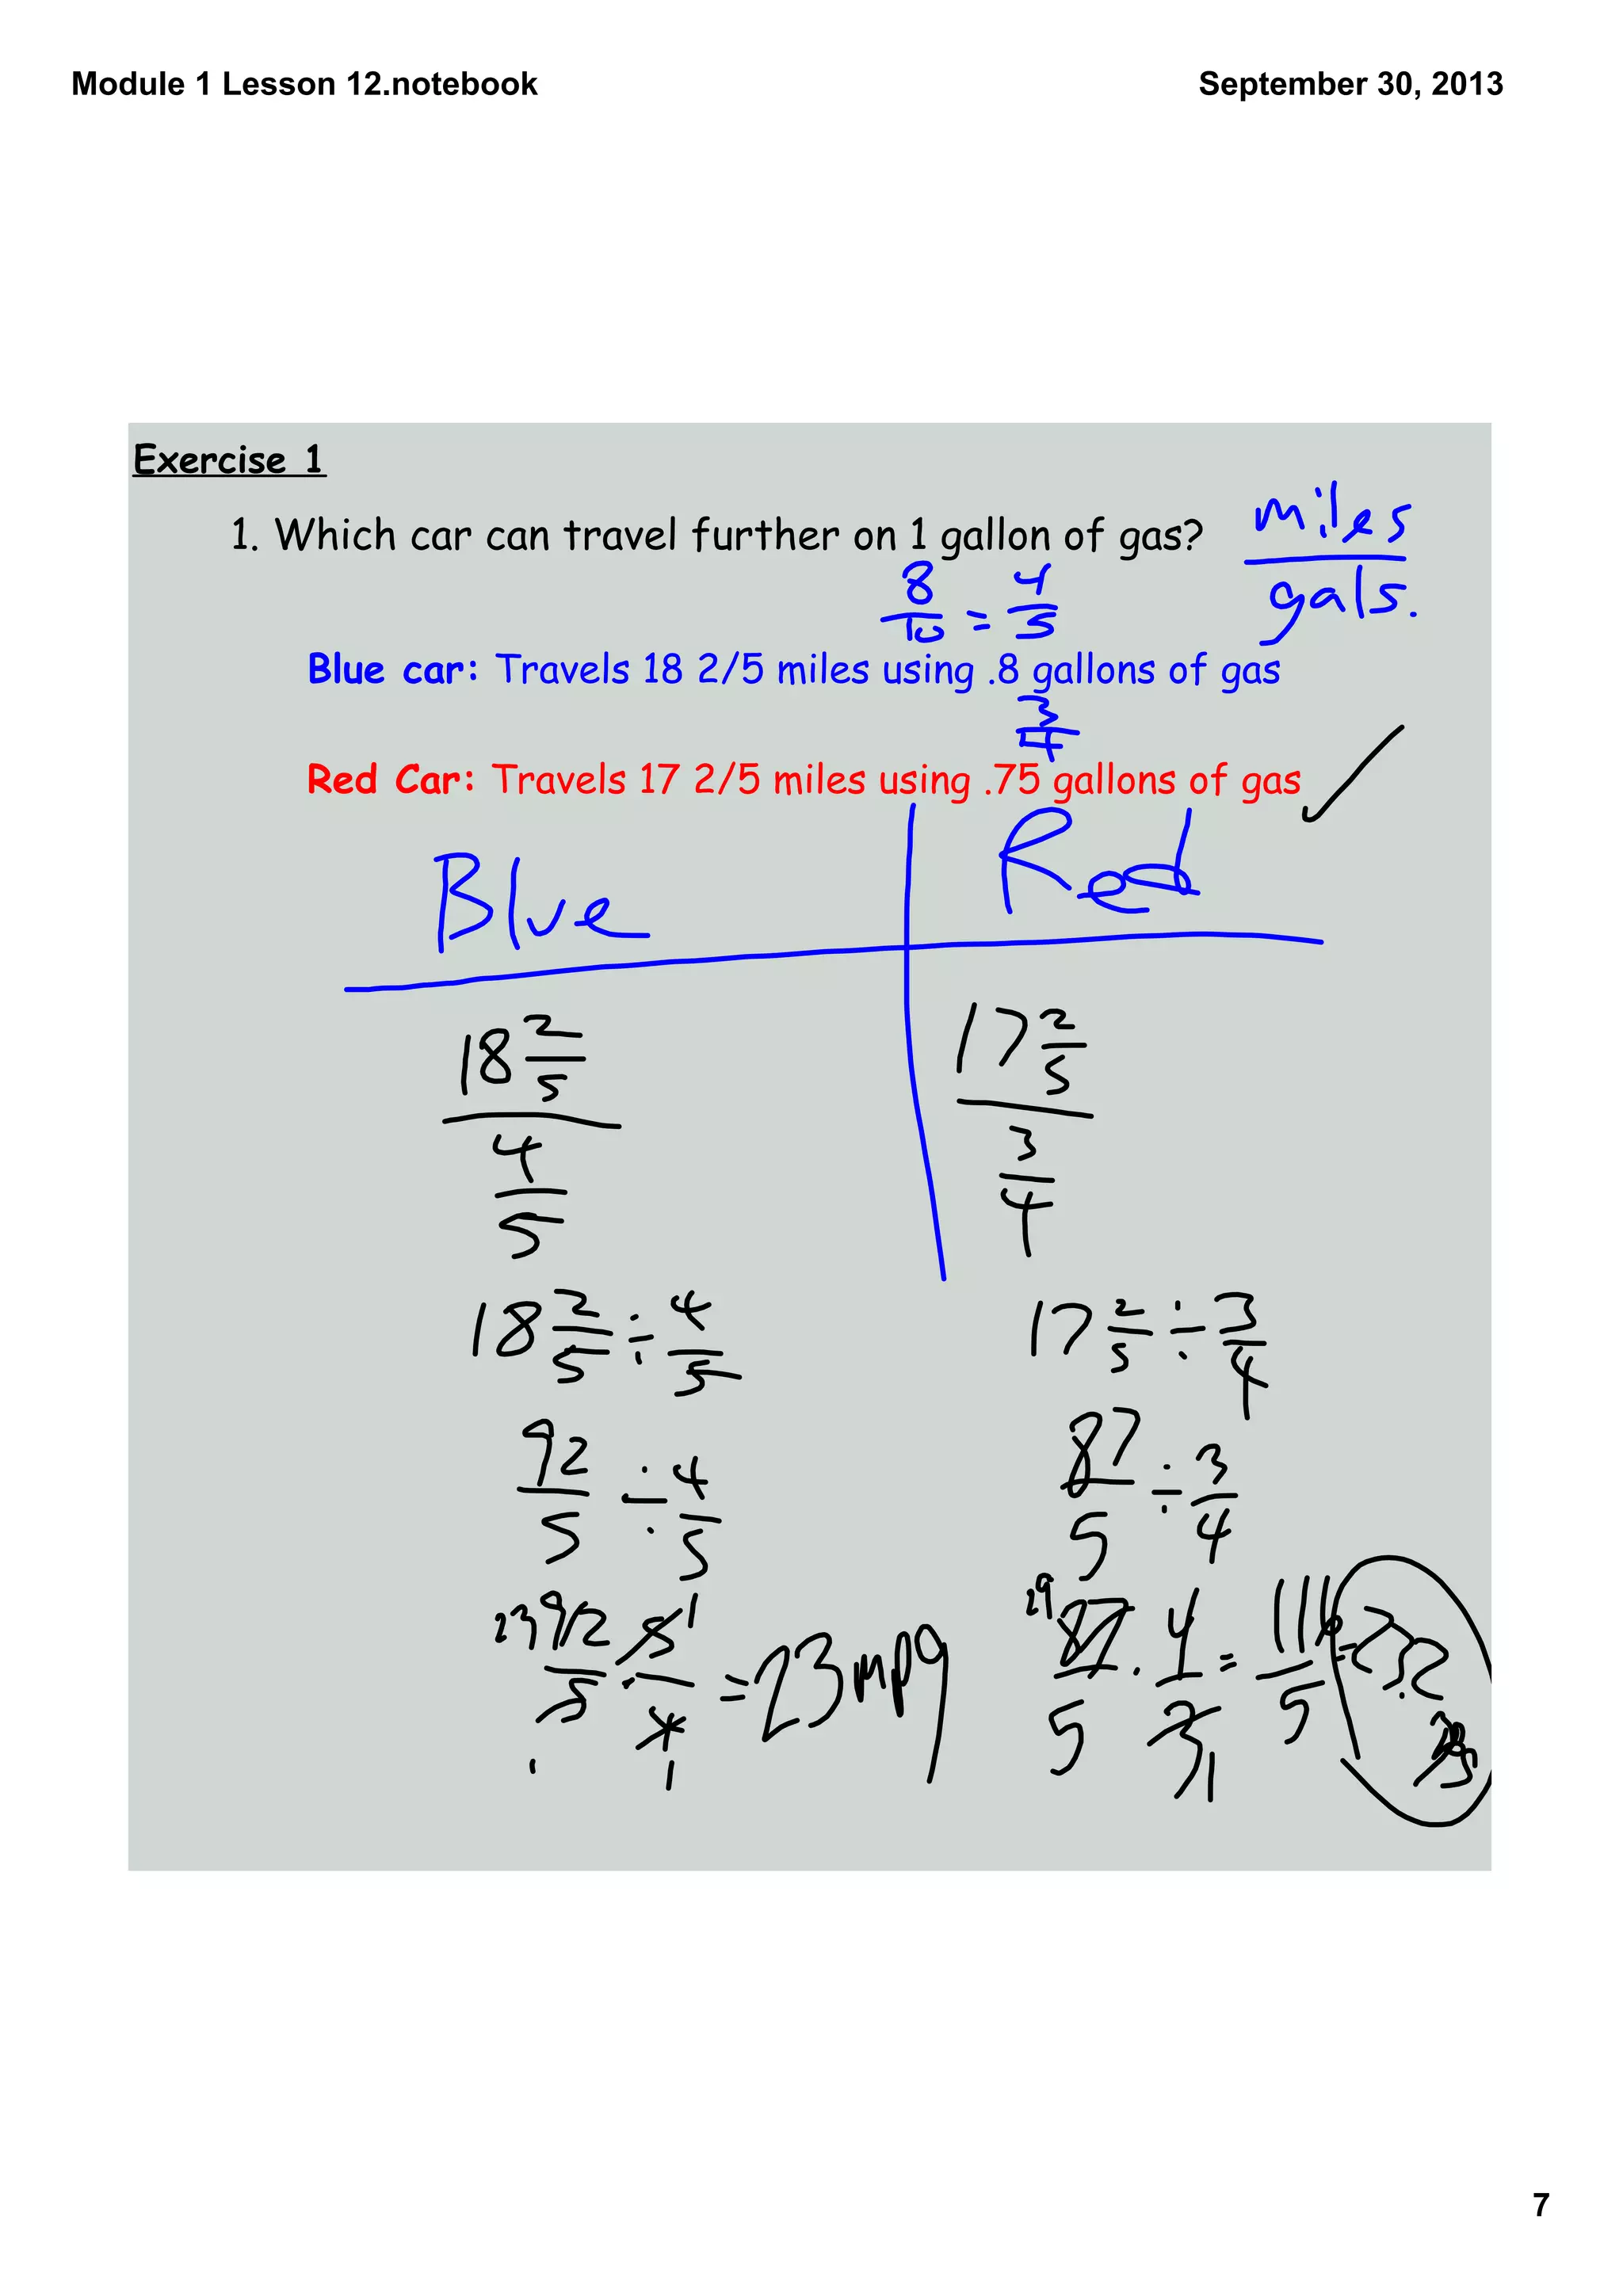 Module 1 Lesson 12.notebook
September 30, 2013
Exercise 1
1. Which car can travel further on 1 gallon of gas?
miles
gals.
8/10 = 4/5
Blue car: Travels 18 2/5 miles using .8 gallons of gas
3/4
Red Car: Travels 17 2/5 miles using .75 gallons of gas
Blue
Red
18 2/5
17 2/5
4/5
3/4
18 2/5 ÷ 4/5
17 2/5 ÷ 3/4
92/5 ÷ 4/5
87/5 ÷ 3/4
23 92/5 · 5/4 1 = 23 mpg
29 87/5 · 4/3 = 116/5
1
1
1
7